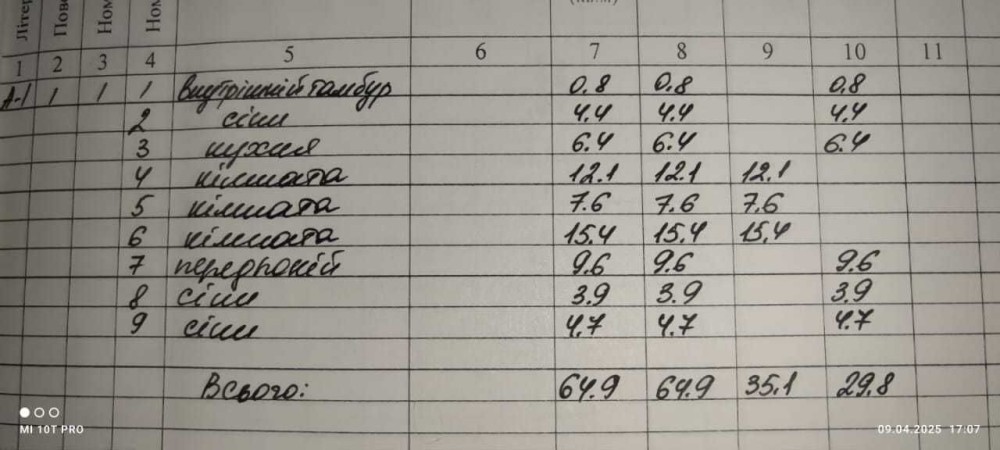 Літер
Пове
Ном
Ном
1 2 3 4 5 6 7 8 9 10 11
А-1 1 1 1 Внутрішній тамбур 0.8 0.8 0.8
2 сіни 4.4 4.4 4.4
3 кухня 6.4 6.4 6.4
4 кімната 12.1 12.1 12.1
5 кімната 7.6 7.6 7.6
6 кімната 15.4 15.4 15.4
7 передпокій 9.6 9.6 9.6
8 сіни 3.9 3.9 3.9
9 сіни 4.7 4.7 4.7
Всього: 64.9 64.9 35.1 29.8
MI 10T PRO
09.04.2025 17:07